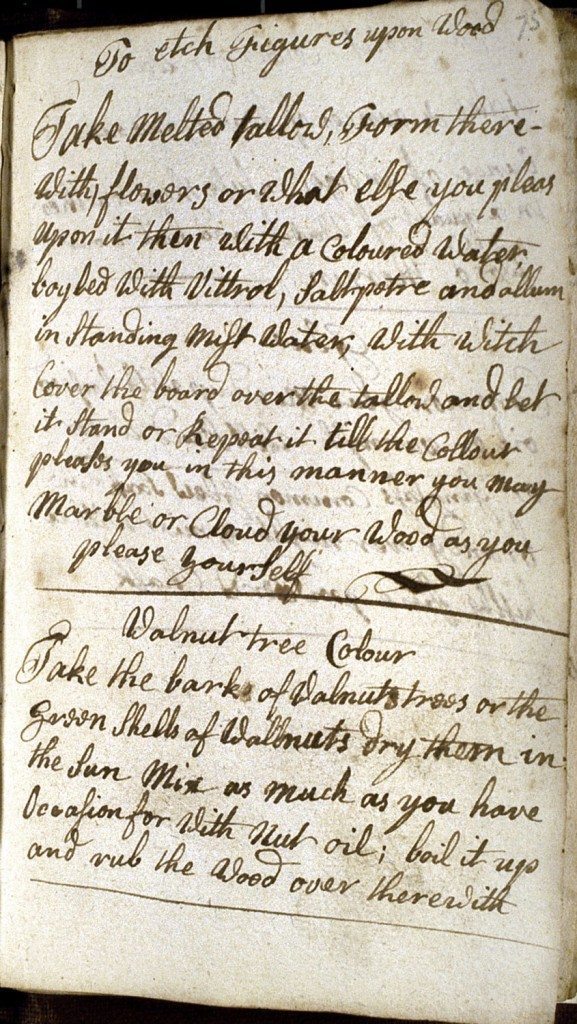 75
To etch Figures upon Wood
Take Melted tallow, Form there-
With, flowers or What else you pleas
upon it then With a Coloured Water
boyled With Vittrol, Saltpetre and allum
in Standing Mist Water, With Witch
Cover the board over the tallow and let
it Stand or Repeat it till the Collour
pleases you in this manner you may
Marble or Cloud your Wood as you
please yourSelf
Walnut tree Colour
Take the bark of Walnut trees or the
Green Shells of Wallnuts dry them in
the Sun Mix as much as you have
Occasion for With Nut oil; boil it up
and rub the Wood over therewith